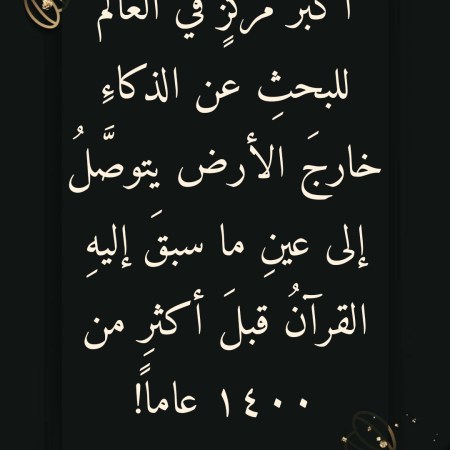 أكبر مركزٍ في العالم
للبحثِ عن الذكاءِ
خارجَ الأرض يتوصَّلُ
إلى عينِ ما سبقَ إليهِ
القرآنُ قبلَ أكثرِ من
١٤٠٠ عاماً!